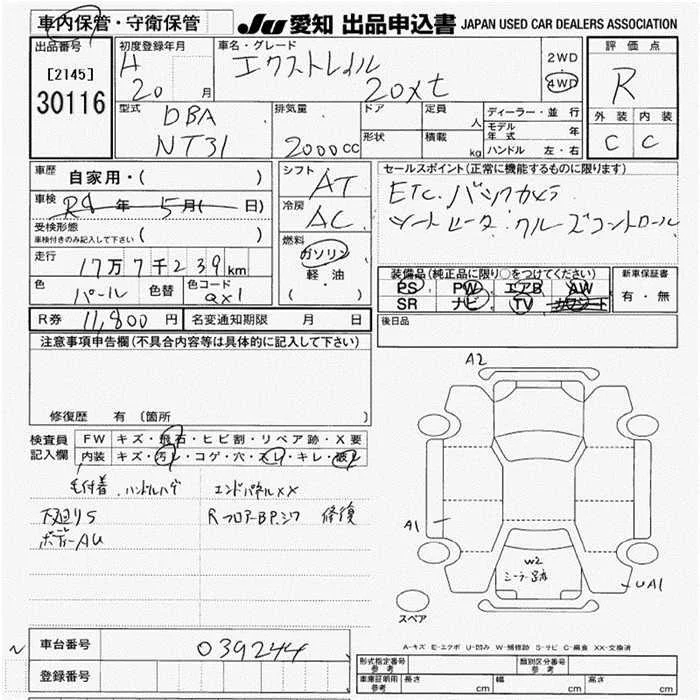 車内保管・守衛保管
JU 愛知 出品申込書 JAPAN USED CAR DEALERS ASSOCIATION
出品番号
[2145]
30116
初度登録年月
H
20 月
車名・グレード
エクストレイル
20xt
2WD
4WD
評価点
R
外装 内装
C C
型式
DBA
NT31
排気量
2000cc
ドア
形状
定員 人
積載 kg
ディーラー・並行
モデル年式 年
ハンドル 左・右
車歴
自家用・( )
車検
R8 年 5月( 日)
受検形態
車検付きのみ記入して下さい ( )
走行
17万7千239km
色
パール
色替
色コード
QX1
シフト
AT
冷房
AC
燃料
ガソリン
軽・油
( )
セールスポイント(正常に機能するものに限ります)
ETC.バックカメラ
シートヒータ.クルーズコントロール
装備品(純正品に限り○をつけてください)
PS PW エアB AW
SR ナビ TV カワシート
新車保証書
有・無
後日品
R券 11,800 円
名変通知期限 月 日
注意事項申告欄(不具合内容等は具体的に記入して下さい)
修復歴 有〔箇所 〕
検査員
記入欄
FW キズ・飛石・ヒビ割・リペア跡・X要
内装 キズ・汚レ・コゲ・穴・スレ・キレ・破レ
毛付着.ハンドルハゲ
下廻りS
ボデーAU
エンドパネルXX
RフロアーBP.シワ 修復
A2
A1
W2
シーラー
UA1
スペア
A-キズ E-エクボ U-凹み W-補修跡 S-サビ C-腐食 XX-交換済
車台番号
039244
登録番号
型式指定番号
参考
類別区分番号
参考
車庫証明用
参考
長さ cm
幅 cm
高さ cm